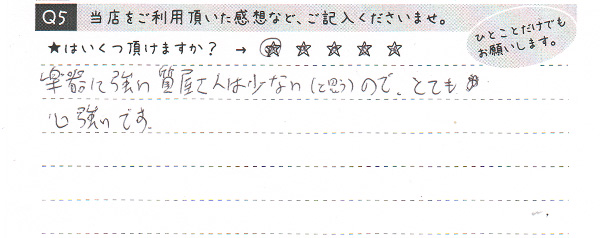 Q5 当店をご利用頂いた感想など、ご記入くださいませ。
★はいくつ頂けますか？ → ☆ ☆ ☆ ☆ ☆
ひとことだけでも
お願いします。
楽器に強い質屋さんは少ない(と思う)ので、とても
心強いです。